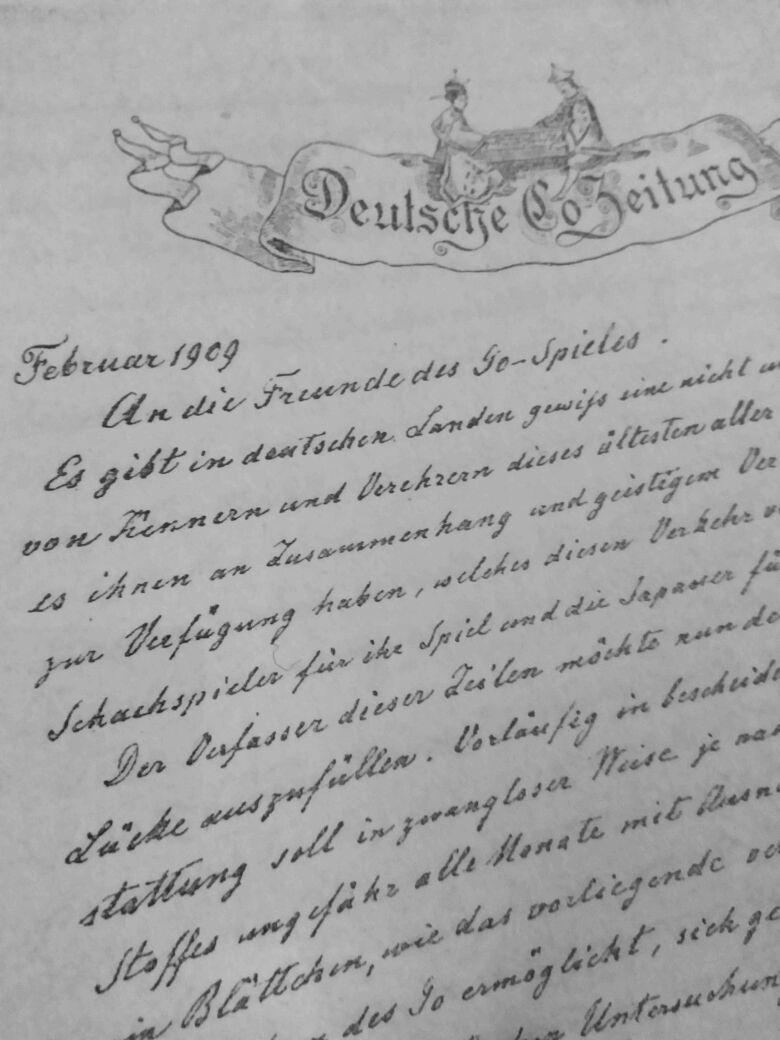 Deutsche Go Zeitung
Februar 1909
An die Freunde des Go-Spieles.
Es gibt in deutschen Landen gewiss eine nicht
von Kennern und Verehrern dieses ältesten aller
es ihnen an Zusammenhang und geistigem Ver
zur Verfügung haben, welches diesen Verkehr
Schachspieler für ihr Spiel und die Japaner fü
Der Verfasser dieser Zeilen möchte nun de
Lücke auszufüllen. Vorläufig in bescheide
stattung soll in zwangloser Weise je na
Stoffes ungefähr alle Monate mit Ausn
ein Blättchen, wie das vorliegende
des Go ermöglicht, sich ge
Untersuchun